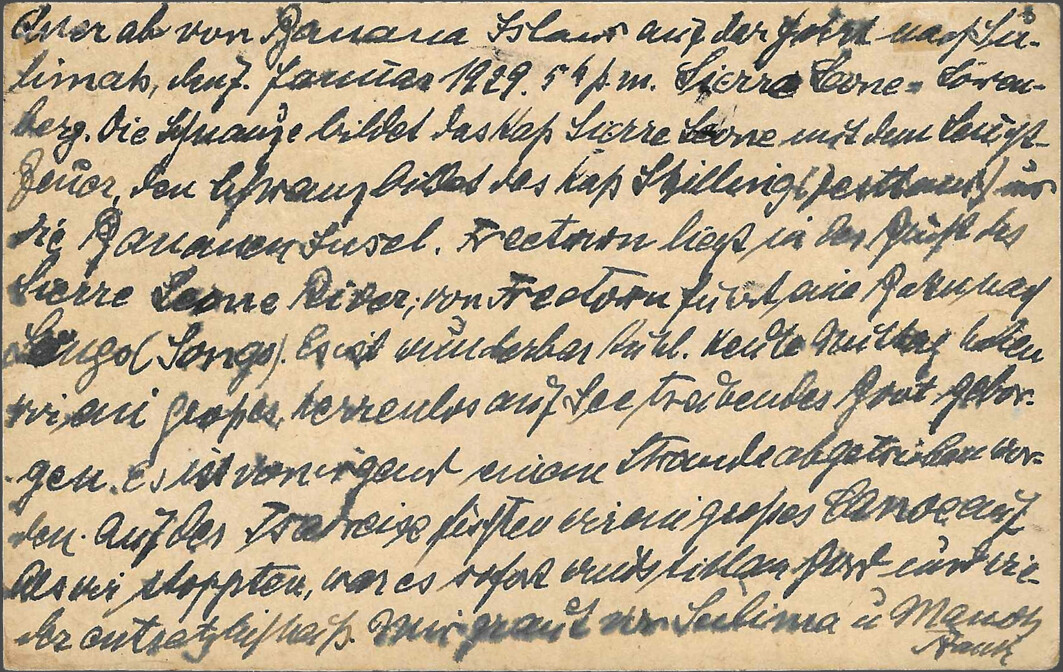 Quer ab von Banana Island auf der Fahrt nach Su-
limah, den 7. Januar 1929. 5 h p.m. Sierra Leone = Löwen-
berg. Die Schnauze bildet das Kap Sierre Leone mit dem Leucht-
feuer, den Schwanz bildet das Kap Shilling und
die Bananen Insel. Freetown liegt in der Bucht des
Sierre Leone River; von Freetown führt eine Bahn nach
Songo (Songo). Es ist wunderbar kühl. Heute Mittag haben
wir ein großes, herrenlos auf See treibendes Boot gebor-
gen. Es ist von irgend einem Strande abgetrieben wor-
den. Auf der fischten wir ein großes Canoe auf
Als wir stoppten, war es sofort windstill an Bord und wie-
der entsetzlich heiß. Mir graut vor Sulima u Manoh
Frank